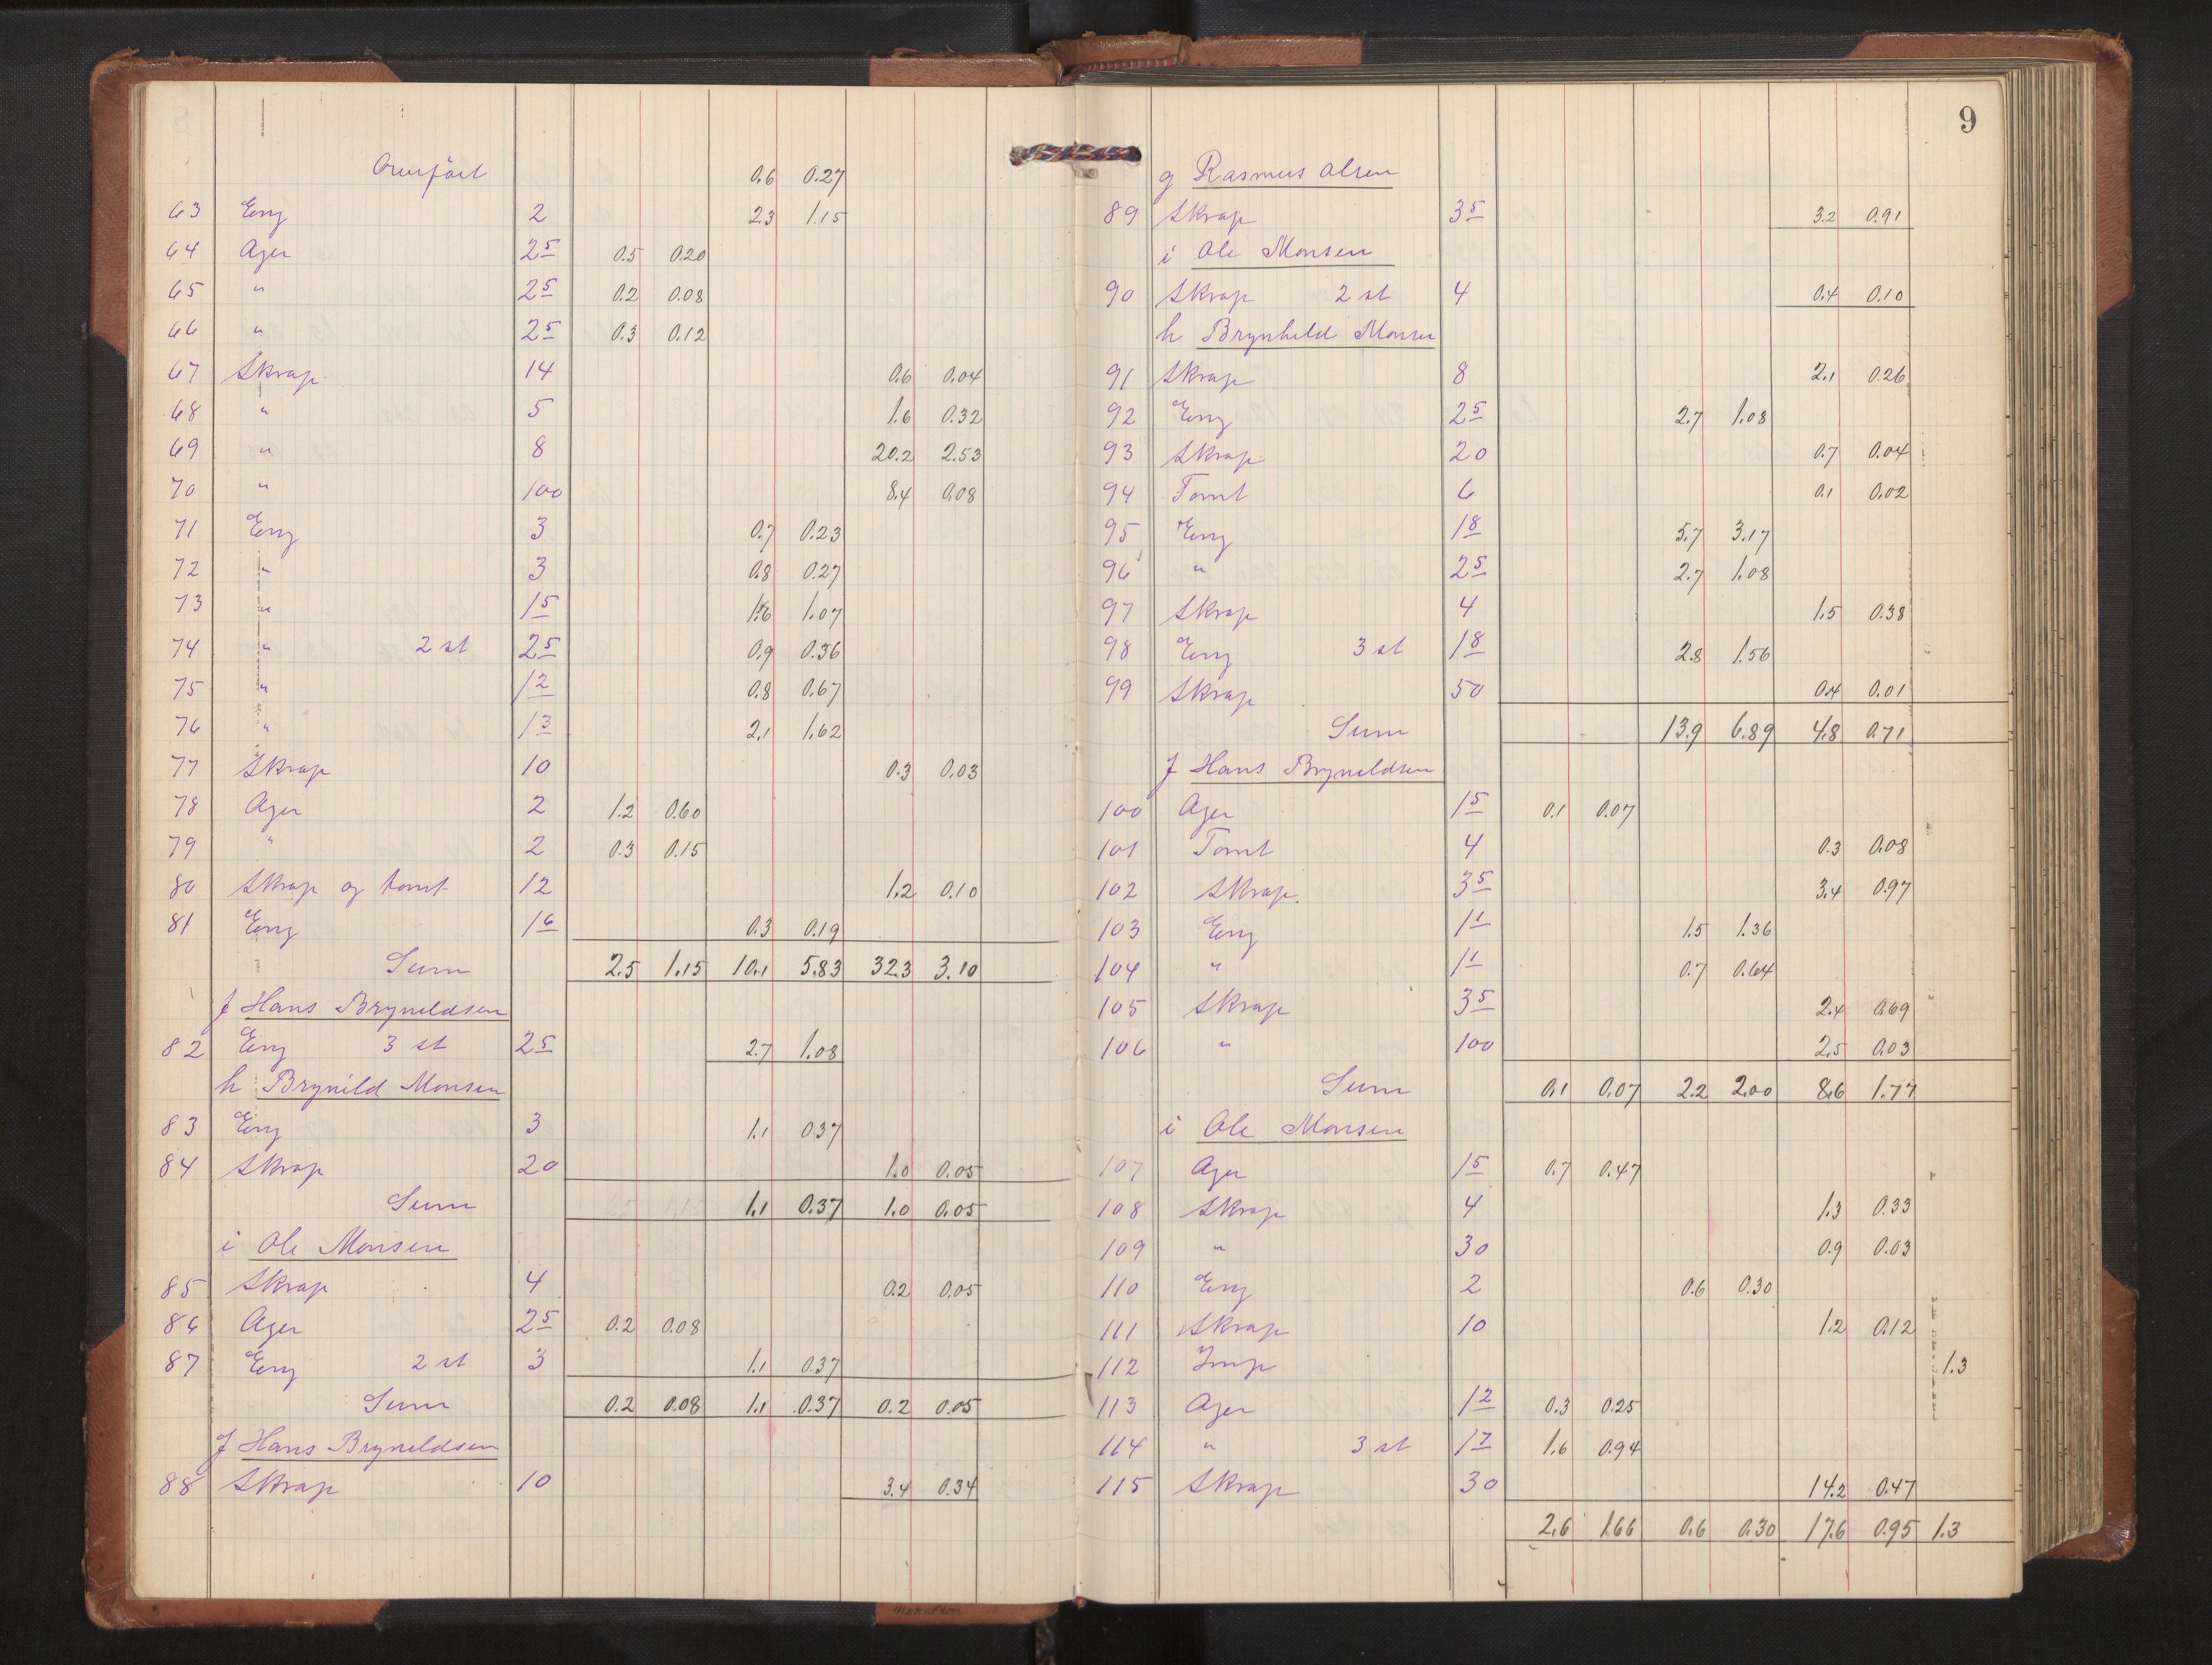 Overført 0.6 0.27
63 Eng 2 2.3 1.15
64 Ager 2 5 0.5 0.20
65 " 2 5 0.2 0.08
66 " 2 5 0.3 0.12
67 Skrap 14 0.6 0.04
68 " 5 1.6 0.32
69 " 8 20.2 2.53
70 " 100 8.4 0.08
71 Eng 3 0.7 0.23
72 " 3 0.8 0.27
73 " 1 5 1.6 1.07
74 " 2 st 2 5 0.9 0.36
75 " 1 2 0.8 0.67
76 " 1 3 2.1 1.62
77 Skrap 10 0.3 0.03
78 Ager 2 1.2 0.60
79 " 2 0.3 0.15
80 Skrap og tomt 12 1.2 0.10
81 Eng 1 6 0.3 0.19
Sum 2.5 1.15 10.1 5.83 32.3 3.10
f Hans Bryneldsen
82 Eng 3 st 2 5 2.7 1.08
h Brynild Monsen
83 Eng 3 1.1 0.37
84 Skrap 20 1.0 0.05
Sum 1.1 0.37 1.0 0.05
i Ole Monsen
85 Skrap 4 0.2 0.05
86 Ager 2 5 0.2 0.08
87 Eng 2 st 3 1.1 0.37
Sum 0.2 0.08 1.1 0.37 0.2 0.05
f Hans Bryneldsen
88 Skrap 10 3.4 0.34
9
g Rasmus Olsen
89 Skrap 3 5 3.2 0.91
i Ole Monsen
90 Skrap 2 st 4 0.4 0.10
h Brynhild Monsen
91 Skrap 8 2.1 0.26
92 Eng 2 5 2.7 1.08
93 Skrap 20 0.7 0.04
94 Tomt 6 0.1 0.02
95 Eng 1 8 5.7 3.17
96 " 2 5 2.7 1.08
97 Skrap 4 1.5 0.38
98 Eng 3 st 1 8 2.8 1.56
99 Skrap 50 0.4 0.01
Sum 13.9 6.89 4.8 0.71
f Hans Bryneldsen
100 Ager 1 5 0.1 0.07
101 Tomt 4 0.3 0.08
102 Skrap. 3 5 3.4 0.97
103 Eng 1 1 1.5 1.36
104 " 1 1 0.7 0.64
105 Skrap 3 5 2.4 0.69
106 " 100 2.5 0.03
Sum 0.1 0.07 2.2 2.00 8.6 1.77
i Ole Monsen
107 Ager 1 5 0.7 0.47
108 Skrap 4 1.3 0.33
109 " 30 0.9 0.03
110 Eng 2 0.6 0.30
111 Skrap 10 1.2 0.12
112 Imp 1.3
113 Ager 1 2 0.3 0.25
114 " 3 st 1 7 1.6 0.94
115 Skrap 30 14.2 0.47
2.6 1.66 0.6 0.30 17.6 0.95 1.3